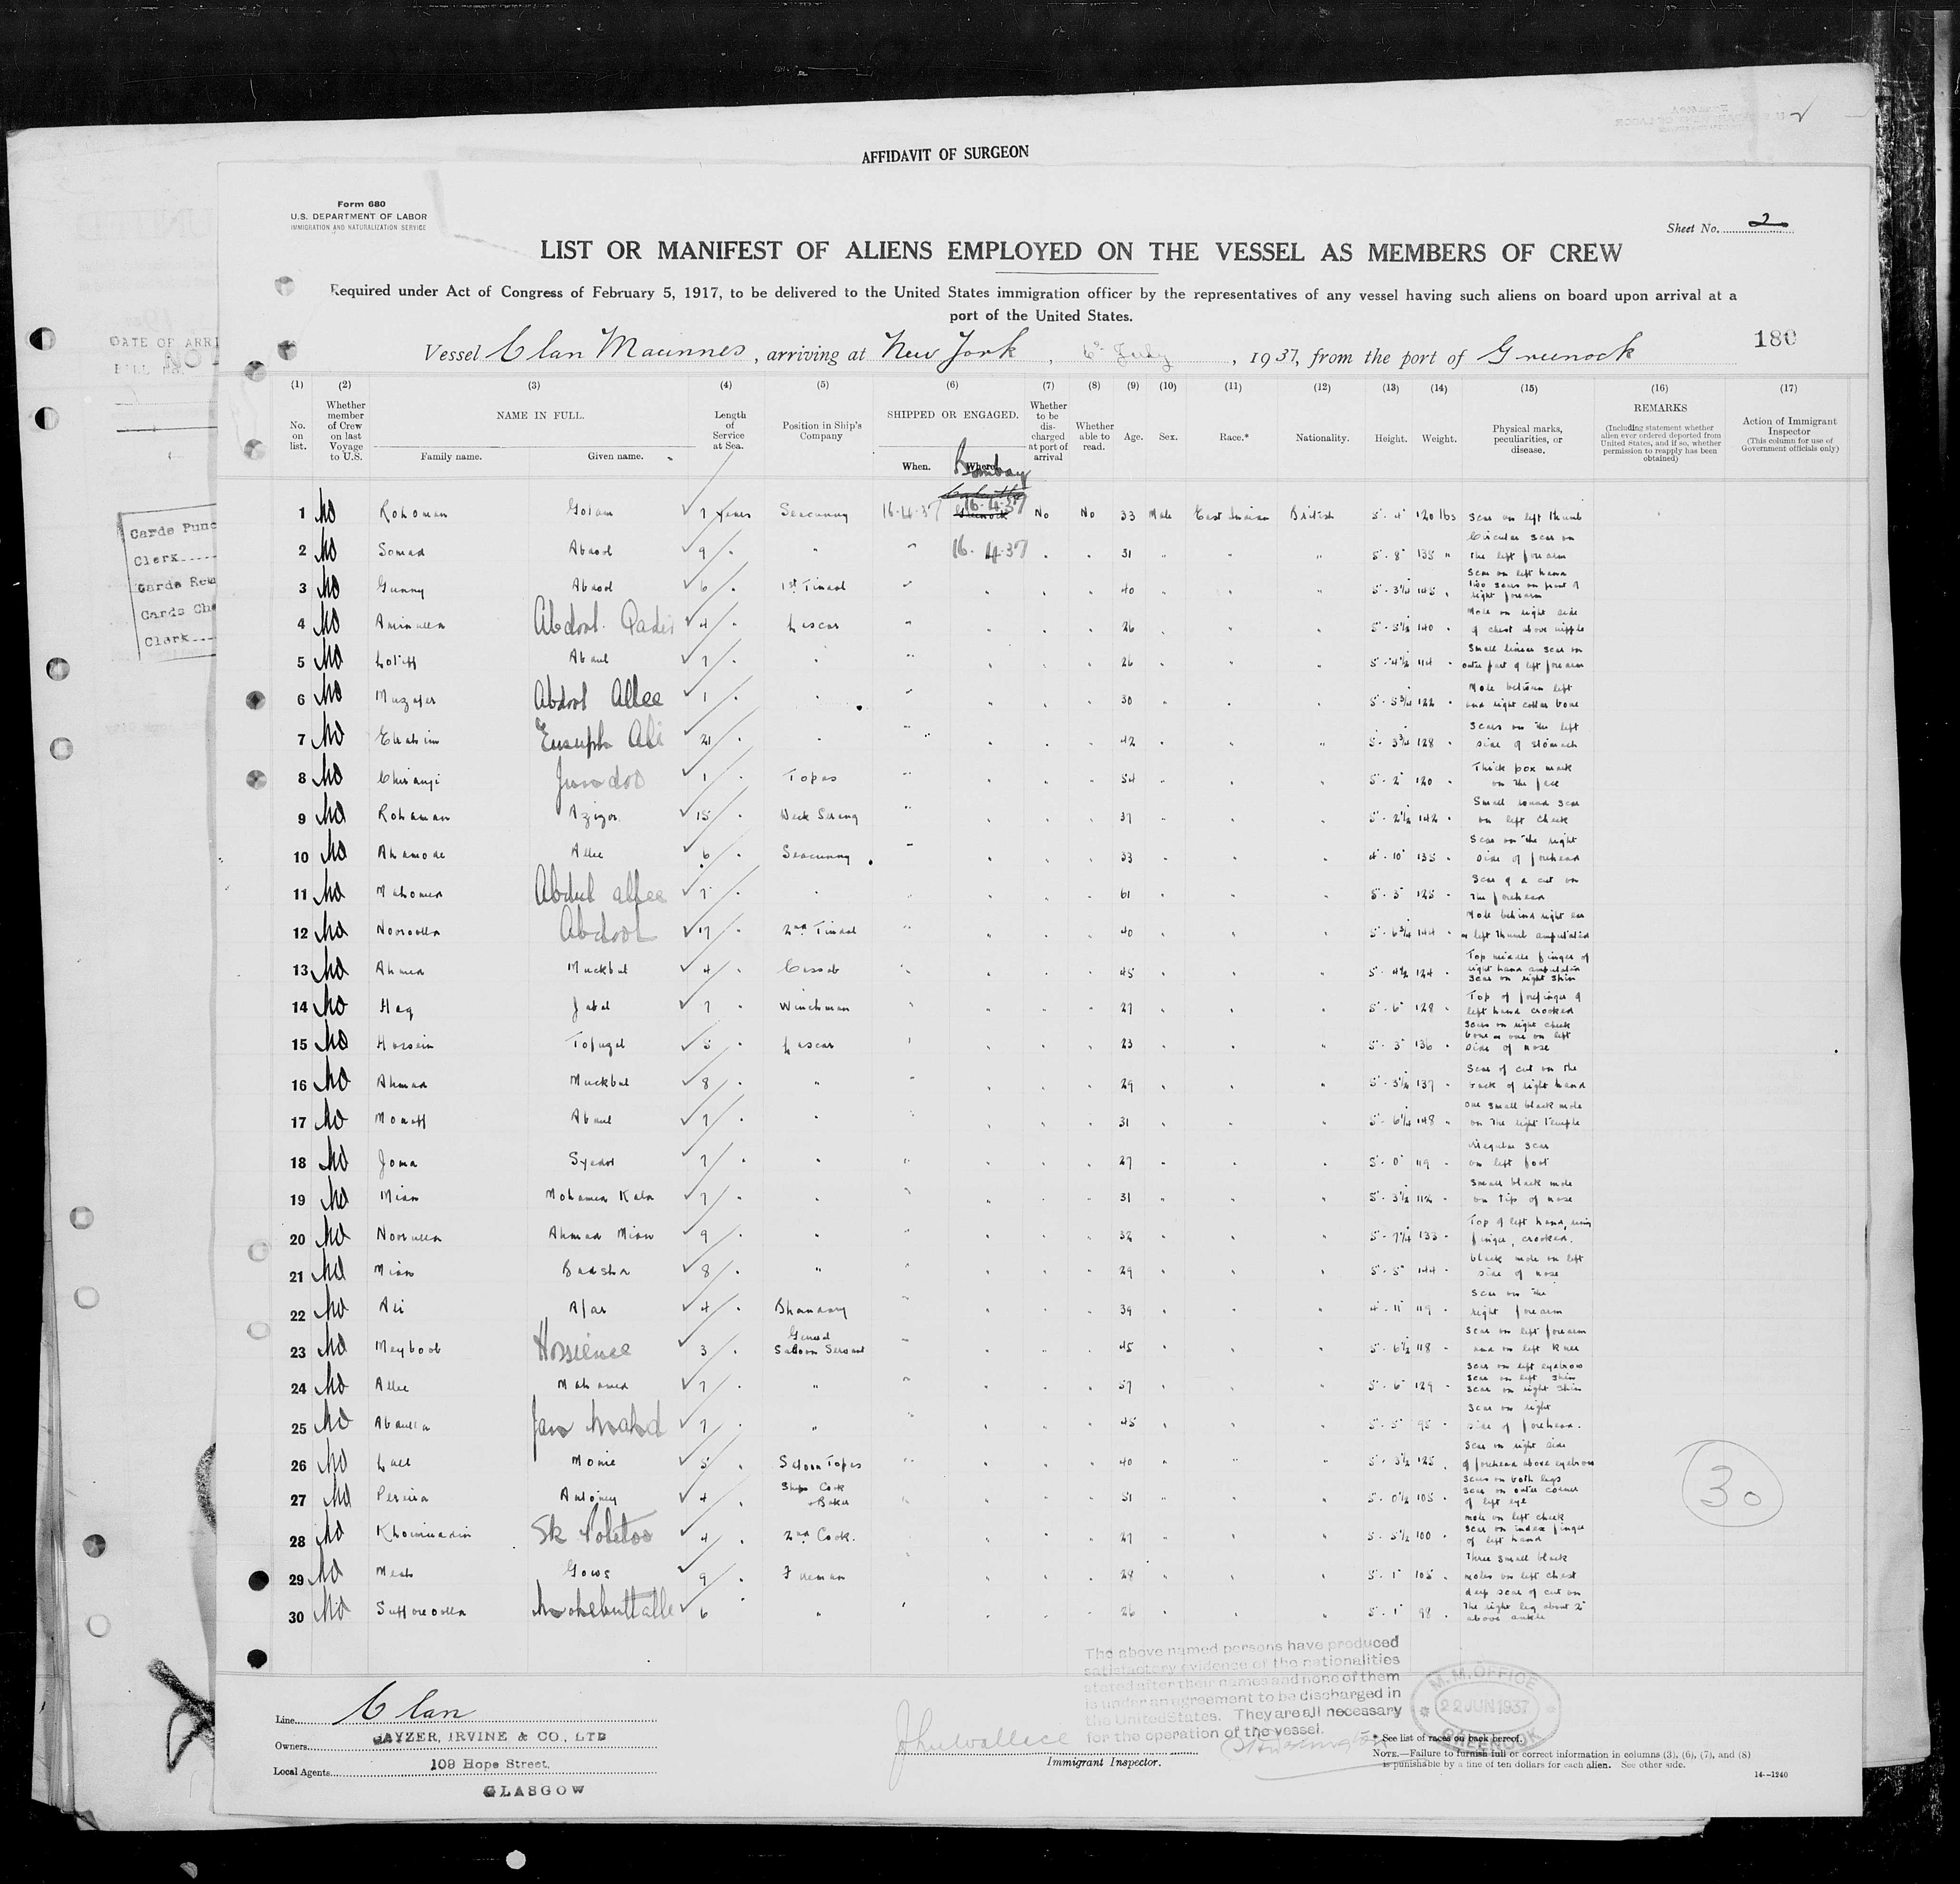 AFFIDAVIT OF SURGEON
Form 680
U.S. DEPARTMENT OF LABOR
IMMIGRATION AND NATURALIZATION SERVICE
Sheet No. 2
LIST OR MANIFEST OF ALIENS EMPLOYED ON THE VESSEL AS MEMBERS OF CREW
Required under Act of Congress of February 5, 1917, to be delivered to the United States immigration officer by the representatives of any vessel having such aliens on board upon arrival at a
port of the United States.
180
Vessel Clan Macinnes, arriving at New York, 6th July, 1937, from the port of Greenock
DATE OF ARRI
Cards Punc
Clerk
Cards Rem
Cards Che
Clerk
(1) (2) (3) (4) (5) (6) (7) (8) (9) (10) (11) (12) (13) (14) (15) (16) (17)
No. on list.
Whether member of Crew on last Voyage to U.S.
NAME IN FULL.
Family name. Given name.
Length of Service at Sea.
Position in Ship's Company
SHIPPED OR ENGAGED.
When. Where.
Bombay
Whether to be discharged at port of arrival
Whether able to read.
Age. Sex. Race.* Nationality. Height. Weight.
Physical marks, peculiarities, or disease.
REMARKS
(Including statement whether alien ever ordered deported from United States, and if so, whether permission to reapply has been obtained)
Action of Immigrant Inspector
(This column for use of Government officials only)
1 No Rohoman Golam 7 years Seacunny 16.4.37 Greenock 16.4.37 No No 33 Male East Indian British 5-4 120 lbs Scar on left thumb
2 No Somad Abdool 9 " " " 16.4.37 31 5-8 135 Circular scar on the left forearm
3 No Gunny Abdool 6 1st Tindal 40 5-3¼ 145 Scar on left hand two scars on front of right forearm
4 No Aminulla Abdool Qadir 4 Lascar 26 5-5½ 140 Mole on right side of chest above nipple
5 No Lotiff Abdul 7 26 5-4½ 114 Small linear scar on outer part of left forearm
6 No Muzafer Abdool Allee 1 30 5-5¾ 122 Mole between left and right collar bone
7 No Ebrahim Eusuph Ali 21 42 5-3¾ 128 Scars on the left side of stomach
8 No Chiranji 1 Topas 54 5-2 120 Thick pox mark on the face
9 No Rohaman Azizor 15 Deck Serang 37 5-2½ 142 Small round scar on left cheek
10 No Ahamode Allee 6 Seacunny 33 4-10 135 Scar on the right side of forehead
11 No Mahomed Abdul allee 7 61 5-5 125 Scar of a cut on the forehead
12 No Noroolla Abdool 17 2nd Tindal 40 5-6¾ 144 Mole behind right ear left thumb amputated
13 No Ahmed Muckbul 4 Cassab 45 5-4½ 124 Top middle finger of right hand amputated scar on right shin
14 No Haq Jabal 7 Winchman 27 5-6 128 Top of forefinger of left hand crooked
15 No Hossein Tofuzel 5 Lascar 23 5-3 136 Scars on right cheek bone & one on left side of nose
16 No Ahmad Muckbul 8 " 29 5-3½ 137 Scar of cut on the back of right hand
17 No Monaff Abdul 7 31 5-6¼ 148 One small black mole on the right temple
18 No Joma Syedol 7 27 5-0 119 Irregular scar on left foot
19 No Mian Mohamed Kala 7 31 5-3½ 112 Small black mole on tip of nose
20 No Noorulla Ahmad Mian 9 32 5-7¼ 133 Top of left hand, ring finger, crooked.
21 No Mian Badsha 8 " 29 5-5 144 black mole on left side of nose
22 No Ali Afar 4 Bhandary 39 4-11 119 Scar on the right forearm
23 No Meyboob Hossienee 3 General Saloon Servant 45 5-6½ 118 Scar on left forearm and on left knee
24 No Allee Mahamed 7 " 57 5-6 129 Scar on left eyebrow scar on left shin scar on right shin
25 No Abdulla Jan Mahd 7 " 45 5-5 95 Scar on right side of forehead.
26 No Lall Monie 5 Saloon Topas 40 5-3½ 125 Scar on right side of forehead above eyebrow
27 No Pereira Antoney 4 Ships Cook & Baker 51 5-0½ 105 Scars on both legs scar on outer corner of left eye
28 No Khoimuddin 4 2nd Cook. 27 5-5½ 100 mole on left cheek scar on index finger of left hand
29 No Meah Gows 9 Fireman 28 5-1 105 Three small black moles on left chest
30 No Sufforoolla 6 " 26 5-1 98 deep scar of cut on the right leg about 2" above ankle
30
The above named persons have produced
satisfactory evidence of the nationalities
stated after their names and none of them
is under an agreement to be discharged in
the United States. They are all necessary
for the operation of the vessel.
M.M. OFFICE
22 JUN 1937
GREENOCK
Line Clan
Owners CAYZER, IRVINE & CO., LTD
Local Agents 109 Hope Street,
GLASGOW
John Wallace
Immigrant Inspector.
* See list of races on back hereof.
NOTE.—Failure to furnish full or correct information in columns (3), (6), (7), and (8)
is punishable by a fine of ten dollars for each alien. See other side.
14—1240